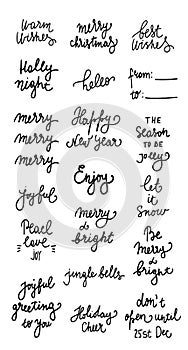 Warm
Wishes
merry
christmas
best
wishes
Holly
night
hello
from:
to:
merry
merry
merry
Happy
New Year
THE
SEASON
TO BE
Jolly
Enjoy
joyful
let
it
snow
Peace
love
JOY
merry
&
bright
Be
Merry
&
bright
jingle bells
joyful
greeting
to you
Holiday
Cheer
don't
open until
25st Dec